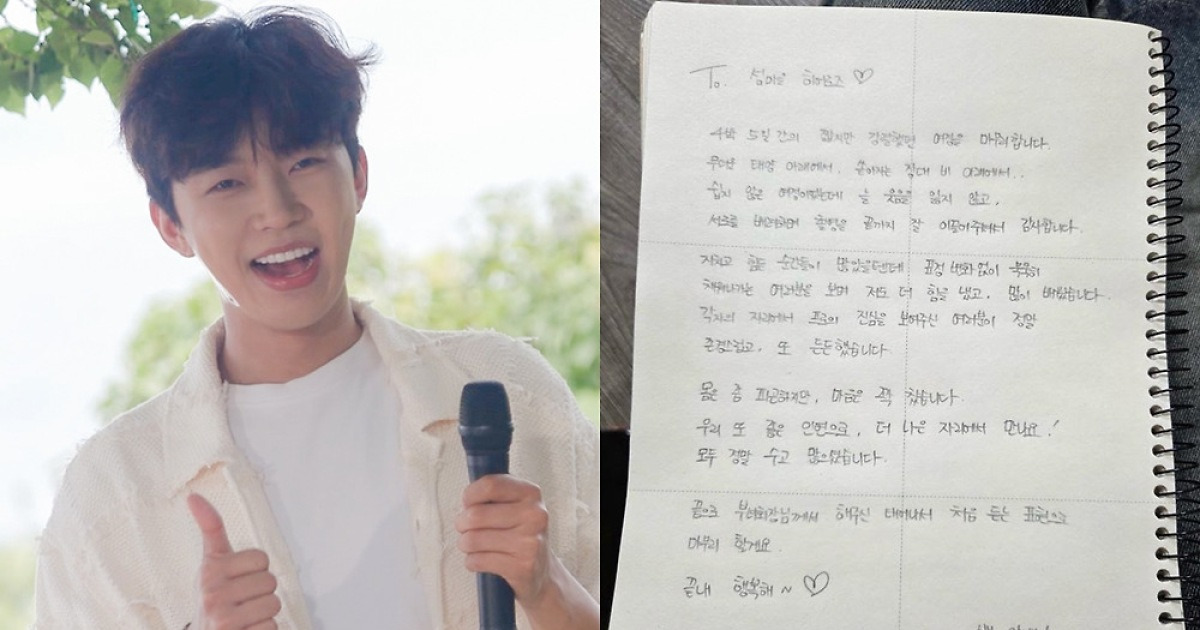 To. 섬마을 히어로즈 ♡
4박 5일간의 짧지만 강렬했던 여정을 마무리합니다.
무더운 태양 아래에서, 쏟아지는 장대 비 아래에서..
쉽지 않은 여정이었는데 늘 웃음을 잃지 않고,
서로를 배려하며 촬영을 끝까지 잘 이끌어주셔서 감사합니다.
지치고 힘든 순간들이 많았을텐데 표정 변화 없이 묵묵히
해나가는 여러분을 보며 저도 더 힘을 냈고, 많이 배웠습니다.
각자의 자리에서 프로의 진심을 보여주신 여러분이 정말
존경스럽고, 또 든든했습니다.
몸은 좀 피곤하지만, 마음은 꽉 찼습니다.
우리 또 좋은 인연으로, 더 나은 자리에서 만나요!
모두 정말 수고 많으셨습니다.
끝으로 부녀회장님께서 해주신 태어나서 처음 듣는 표현으로
마무리 할게요.
끝내 행복해~ ♡